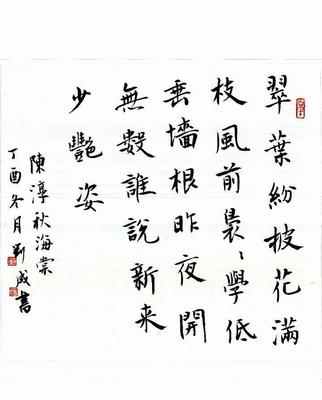 翠葉紛披花滿
枝風前裊〻學低
垂墻根昨夜開
無數誰說新来
少艷姿
陳淳秋海棠
丁酉冬月刘成書